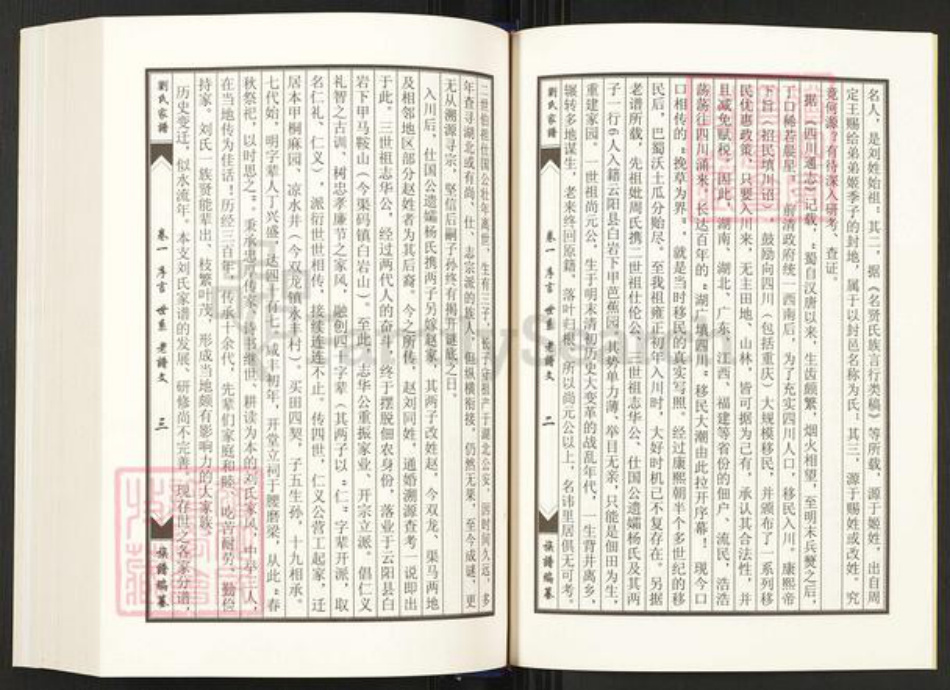 名人，是刘姓始祖；其二，据《名贤氏族言行类稿》等所载，源于姬姓，出自周
定王赐给弟弟姬季子的封地，属于以封邑名称为氏；其三，源于赐姓或改姓。究
竟何源？有待深入研考、查证。
据《四川通志》记载，“蜀自汉唐以来，生齿颇繁，烟火相望，至明末兵燹之后，
丁口稀若晨星。”前清政府统一西南后，为了充实四川人口，移民入川。康熙帝
下旨《招民填川诏》，鼓励向四川（包括重庆）大规模移民，并颁布了一系列移
民优惠政策，只要入川来，无主田地、山林，皆可据为己有，承认其合法性，并
且减免赋税。因此，湖南、湖北、广东、江西、福建等省份的佃户、流民，浩浩
荡荡往四川涌来，长达百年的“湖广填四川”移民大潮由此拉开序幕！现今口
口相传的“挽草为界”，就是当时移民的真实写照。经过康熙朝半个多世纪的移
民后，巴蜀沃土瓜分贻尽。至我祖雍正初年入川时，大好时机已不复存在。另据
老谱所载，先祖妣周氏携二世祖仕伦公、三世祖志华公、仕国公遗孀杨氏及其两
子一行6人入籍云阳县白岩下甲芭蕉园，其势单力薄、举目无亲，只能是佃田为生，
重建家园。一世祖尚元公，生于明末清初历史大变革的战乱年代，一生背井离乡，
辗转多地谋生，老来终回原籍，落叶归根。所以尚元公以上，名讳里居俱无可考。
劉氏家譜
卷一 序言 世系 老譜文
二
族譜編纂
二世伯祖仕国公壮年离世，生有三子，长子守祖产于湖北公安，因时间久远，多
年查寻湖北或有尚、仕、志宗派的族人，但纵横衔接，仍然无果，至今成谜，更
无从溯源寻宗，坚信后嗣子孙终有揭开谜底之日。
入川后，仕国公遗孀杨氏携两子另嫁赵家，其两子改姓赵。今双龙、渠马两地
及相邻地区部分赵姓者为其后裔。今之所传，赵刘同姓，通婚溯源查考一说即出
于此。三世祖志华公，经过两代人的奋斗，终于摆脱佃农身份，落业于云阳县白
岩下甲马鞍山（今渠码镇白岩山）。至此，志华公重振家业、开宗立派。倡仁义
礼智之古训、树忠孝廉节之家风，融创四十字辈（其两子以“仁”字辈开派，取
名仁礼、仁义），派衍世世相传，接续连连不止。传四世，仁义公营工起家，迁
居本甲桐麻园、凉水井（今双龙镇永丰村）。买田四契，子五生孙，十九相承。
七代始，明字辈人丁兴盛，达四十有七。咸丰初年，开堂立祠于腰磨梁，从此“春
秋祭祀，以时思之”。秉承忠厚传家、诗书继世、耕读为本的刘氏家风，中举三人，
在当地传为佳话！历经三百年，传承十余代，先辈们家庭和睦、吃苦耐劳、勤俭
持家。刘氏一族贤能辈出、枝繁叶茂，形成当地颇有影响力的大家族。
历史变迁，似水流年。本支刘氏家谱的发展、研修尚不完善。现存世之各家分谱，
劉氏家譜
卷一 序言 世系 老譜文
三
族譜編纂
FamilySearch